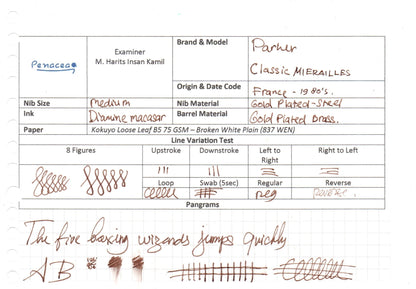 Penacea
Examiner
M. Harits Insan Kamil
Brand & Model
Parker
Classic MIERAILLES
Origin & Date Code
France - 1980's.
Nib Size
medium
Nib Material
Gold Plated-Steel
Ink
Diamine macasar
Barrel Material
Gold Plated Brass.
Paper
Kokuyo Loose Leaf B5 75 GSM – Broken White Plain (837 WEN)
Line Variation Test
8 Figures
Upstroke
Downstroke
Left to Right
Right to Left
Loop
Swab (5sec)
Regular
Reverse
reg
reverse
Pangrams
The five boxing wizards jumps quickly
A B